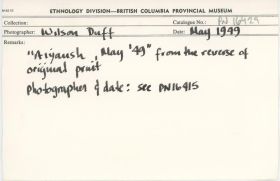 ETHNOLOGY DIVISION—BRITISH COLUMBIA PROVINCIAL MUSEUM
Collection: Catalogue No.: PN 16429
Photographer: Wilson Duff Date: May 1949
Remarks:
"Aiyansh, May '49" from the reverse of
original print
Photographer & date: see PN16415